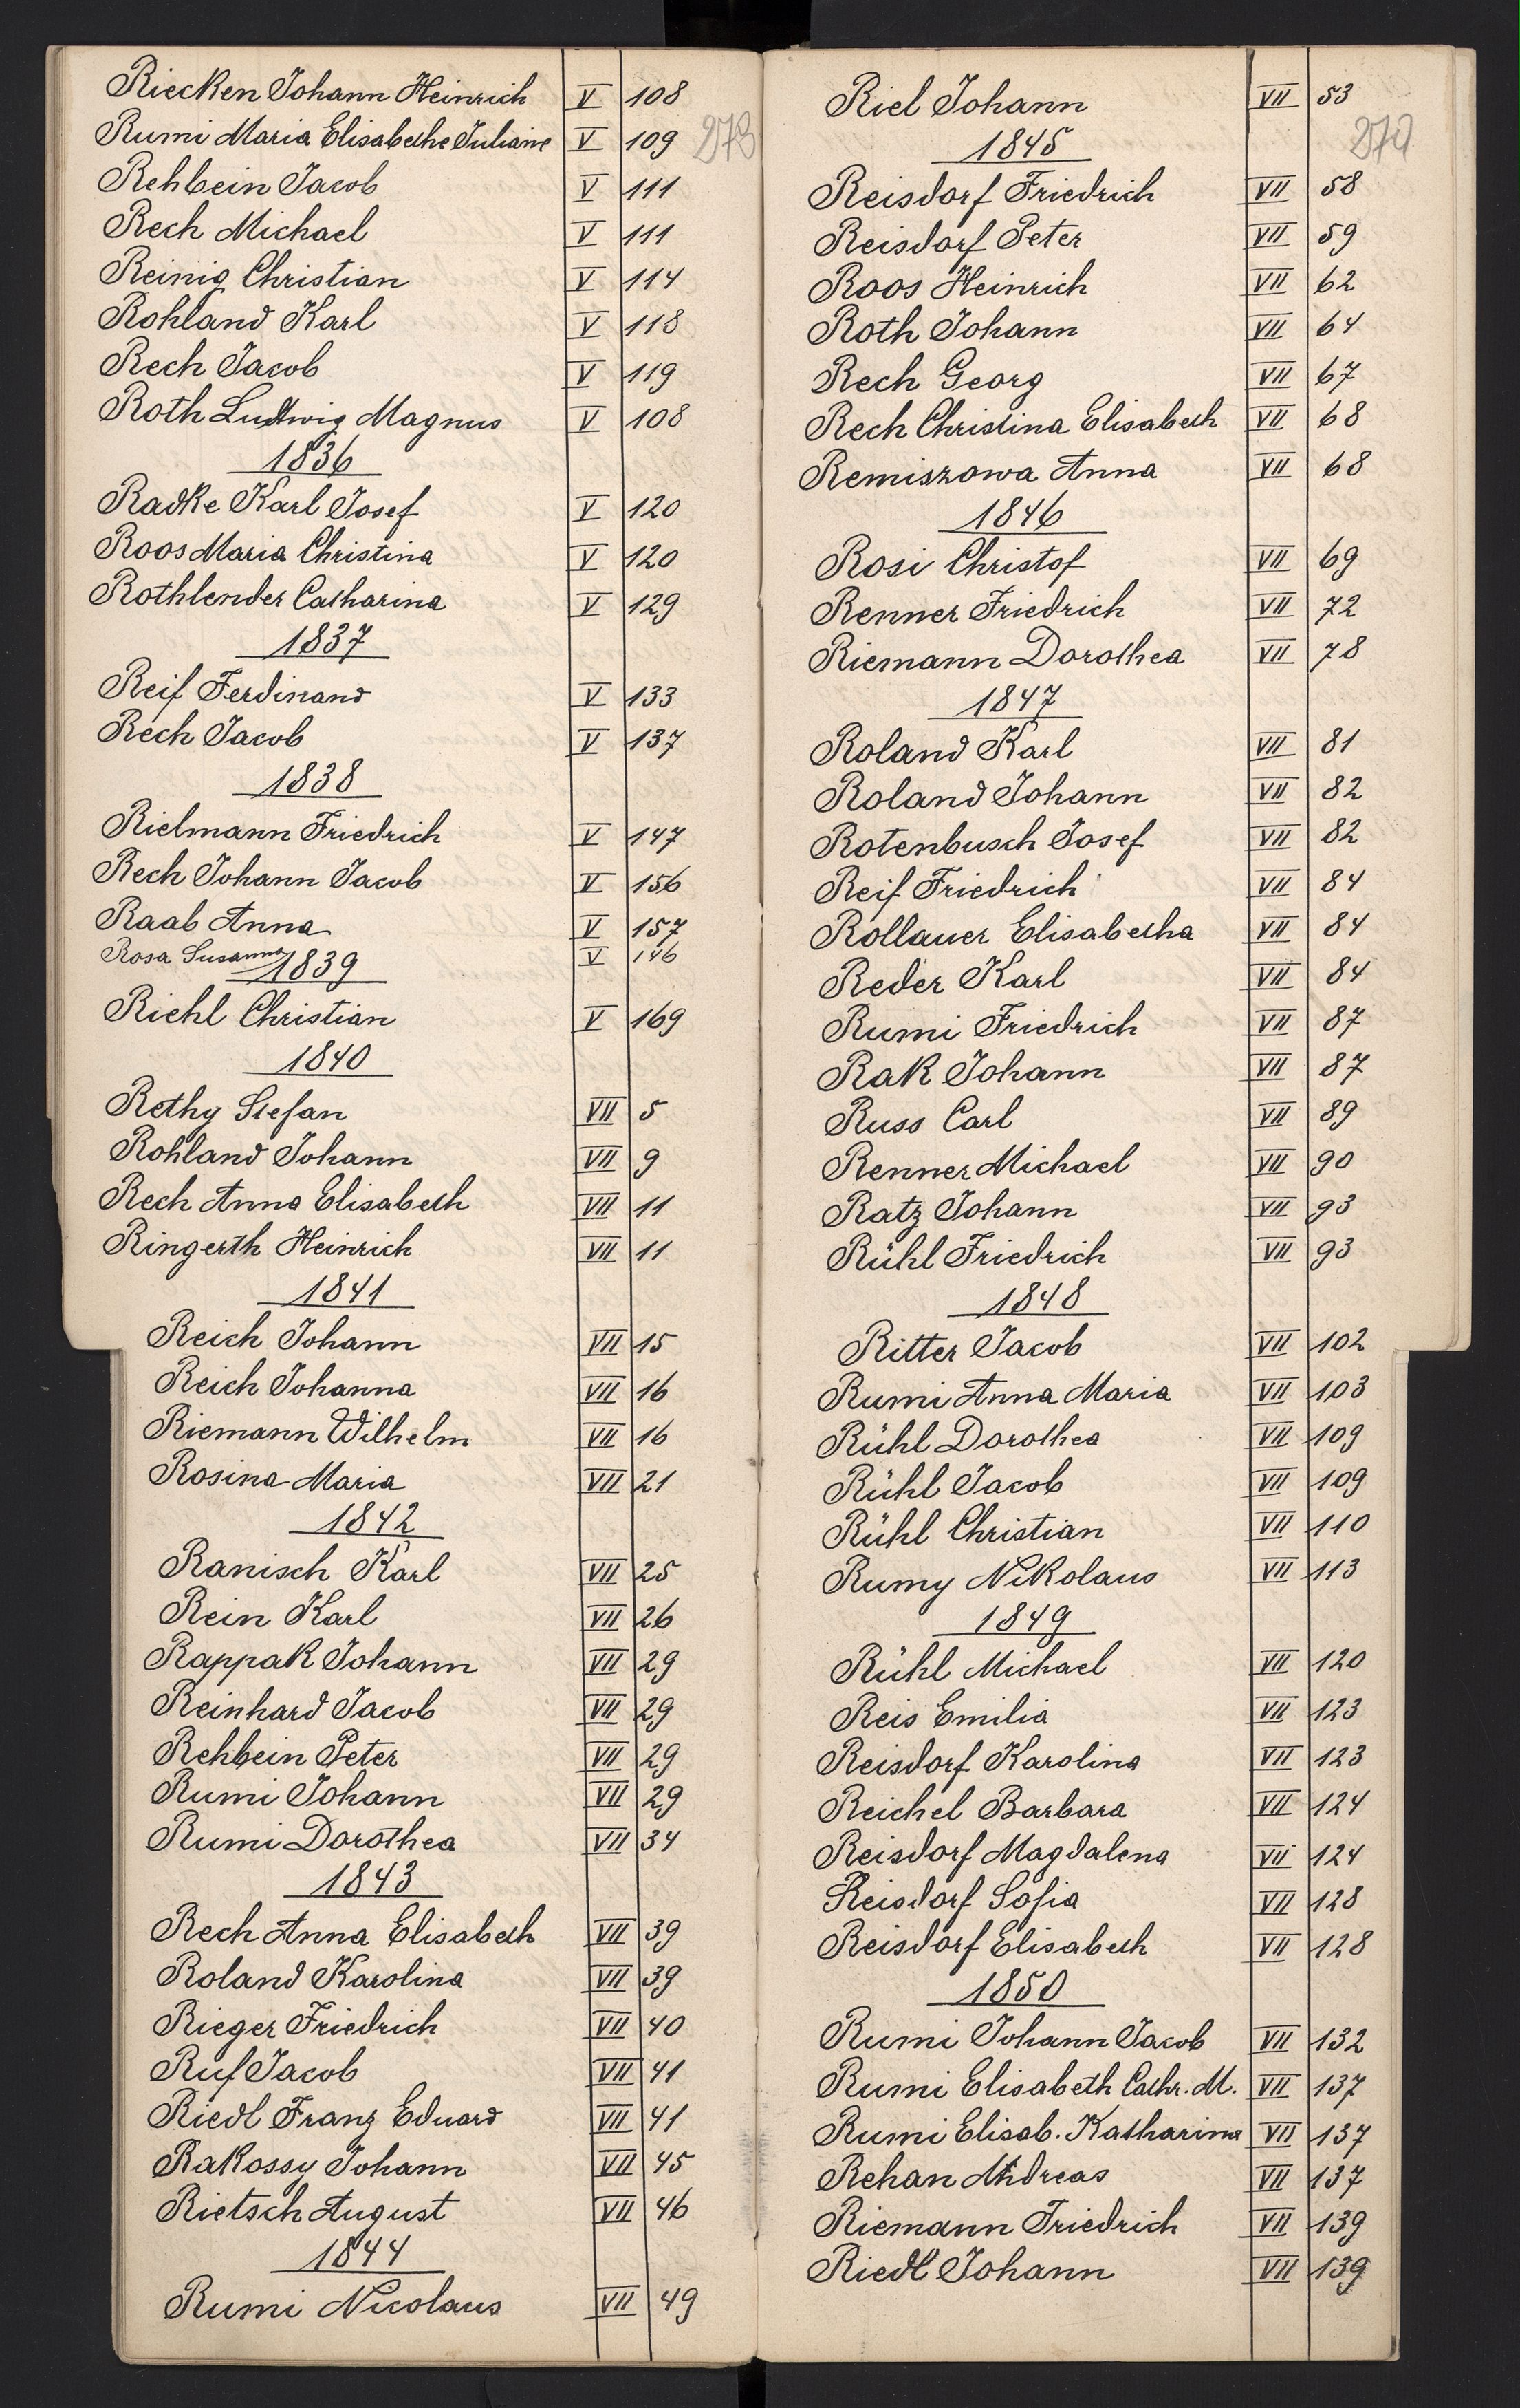 Riecken Johann Heinrich V 108
Rumi Maria Elisabethe Juliane V 109 273
Rehbein Jacob V 111
Rech Michael V 111
Reinig Christian V 114
Rohland Karl V 118
Rech Jacob V 119
Roth Ludwig Magnus V 108
1836
Radke Karl Josef V 120
Roos Maria Christina V 120
Rothlender Catharina V 129
1837
Reif Ferdinand V 133
Rech Jacob V 137
1838
Rielmann Friedrich V 147
Rech Johann Jacob V 156
Raab Anna V 157
Rosa Susanna V 146
1839
Riehl Christian V 169
1840
Rethy Stefan VII 5
Rohland Johann VII 9
Rech Anna Elisabeth VII 11
Ringerth Heinrich VII 11
1841
Reich Johann VII 15
Reich Johanna VII 16
Riemann Wilhelm VII 16
Rosina Maria VII 21
1842
Ranisch Karl VII 25
Rein Karl VII 26
Rappak Johann VII 29
Reinhard Jacob VII 29
Rehbein Peter VII 29
Rumi Johann VII 29
Rumi Dorothea VII 34
1843
Rech Anna Elisabeth VII 39
Roland Karolina VII 39
Rieger Friedrich VII 40
Ruf Jacob VII 41
Riedl Franz Eduard VII 41
Rakossy Johann VII 45
Rietsch August VII 46
1844
Rumi Nicolaus VII 49
Riel Johann VII 53
1845
Reisdorf Friedrich VII 58
Reisdorf Peter VII 59
Roos Heinrich VII 62
Roth Johann VII 64
Rech Georg VII 67
Rech Christina Elisabeth VII 68
Remiszowa Anna VII 68
1846
Rosi Christof VII 69
Renner Friedrich VII 72
Riemann Dorothea VII 78
1847
Roland Karl VII 81
Roland Johann VII 82
Rotenbusch Josef VII 82
Reif Friedrich VII 84
Rollauer Elisabetha VII 84
Reder Karl VII 84
Rumi Friedrich VII 87
Rak Johann VII 87
Russ Carl VII 89
Renner Michael VII 90
Ratz Johann VII 93
Rühl Friedrich VII 93
1848
Ritter Jacob VII 102
Rumi Anna Maria VII 103
Rühl Dorothea VII 109
Rühl Jacob VII 109
Rühl Christian VII 110
Rumy Nikolaus VII 113
1849
Rühl Michael VII 120
Reis Emilia VII 123
Reisdorf Karolina VII 123
Reichel Barbara VII 124
Reisdorf Magdalena VII 124
Reisdorf Sofia VII 128
Reisdorf Elisabeth VII 128
1850
Rumi Johann Jacob VII 132
Rumi Elisabeth Cathr. M. VII 137
Rumi Elisab. Katharina VII 137
Rehan Andreas VII 137
Riemann Friedrich VII 139
Riedl Johann VII 139